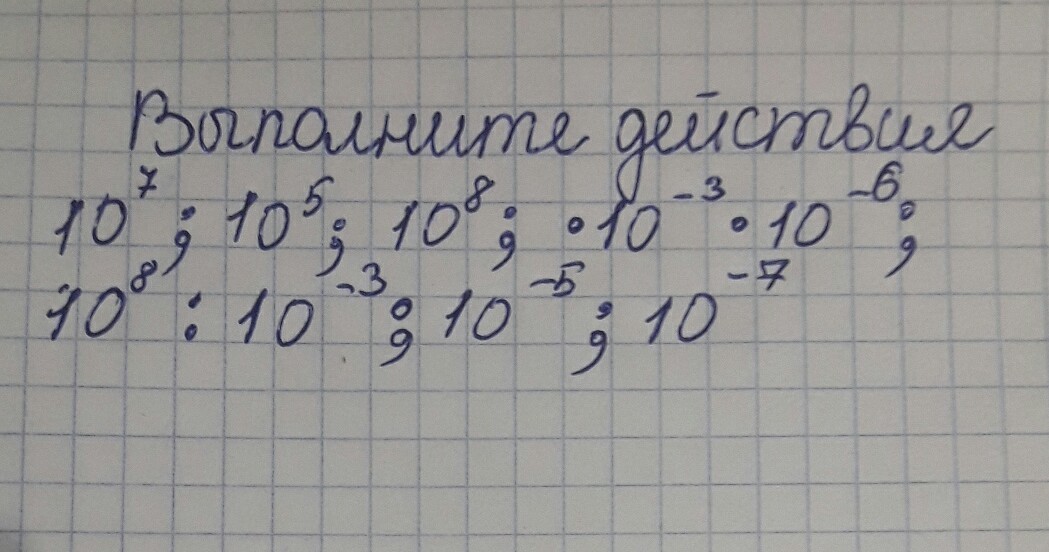 Выполните действия
10⁷; 10⁵; 10⁸; ·10⁻³·10⁻⁶;
10⁸ : 10⁻³; 10⁻⁵; 10⁻⁷